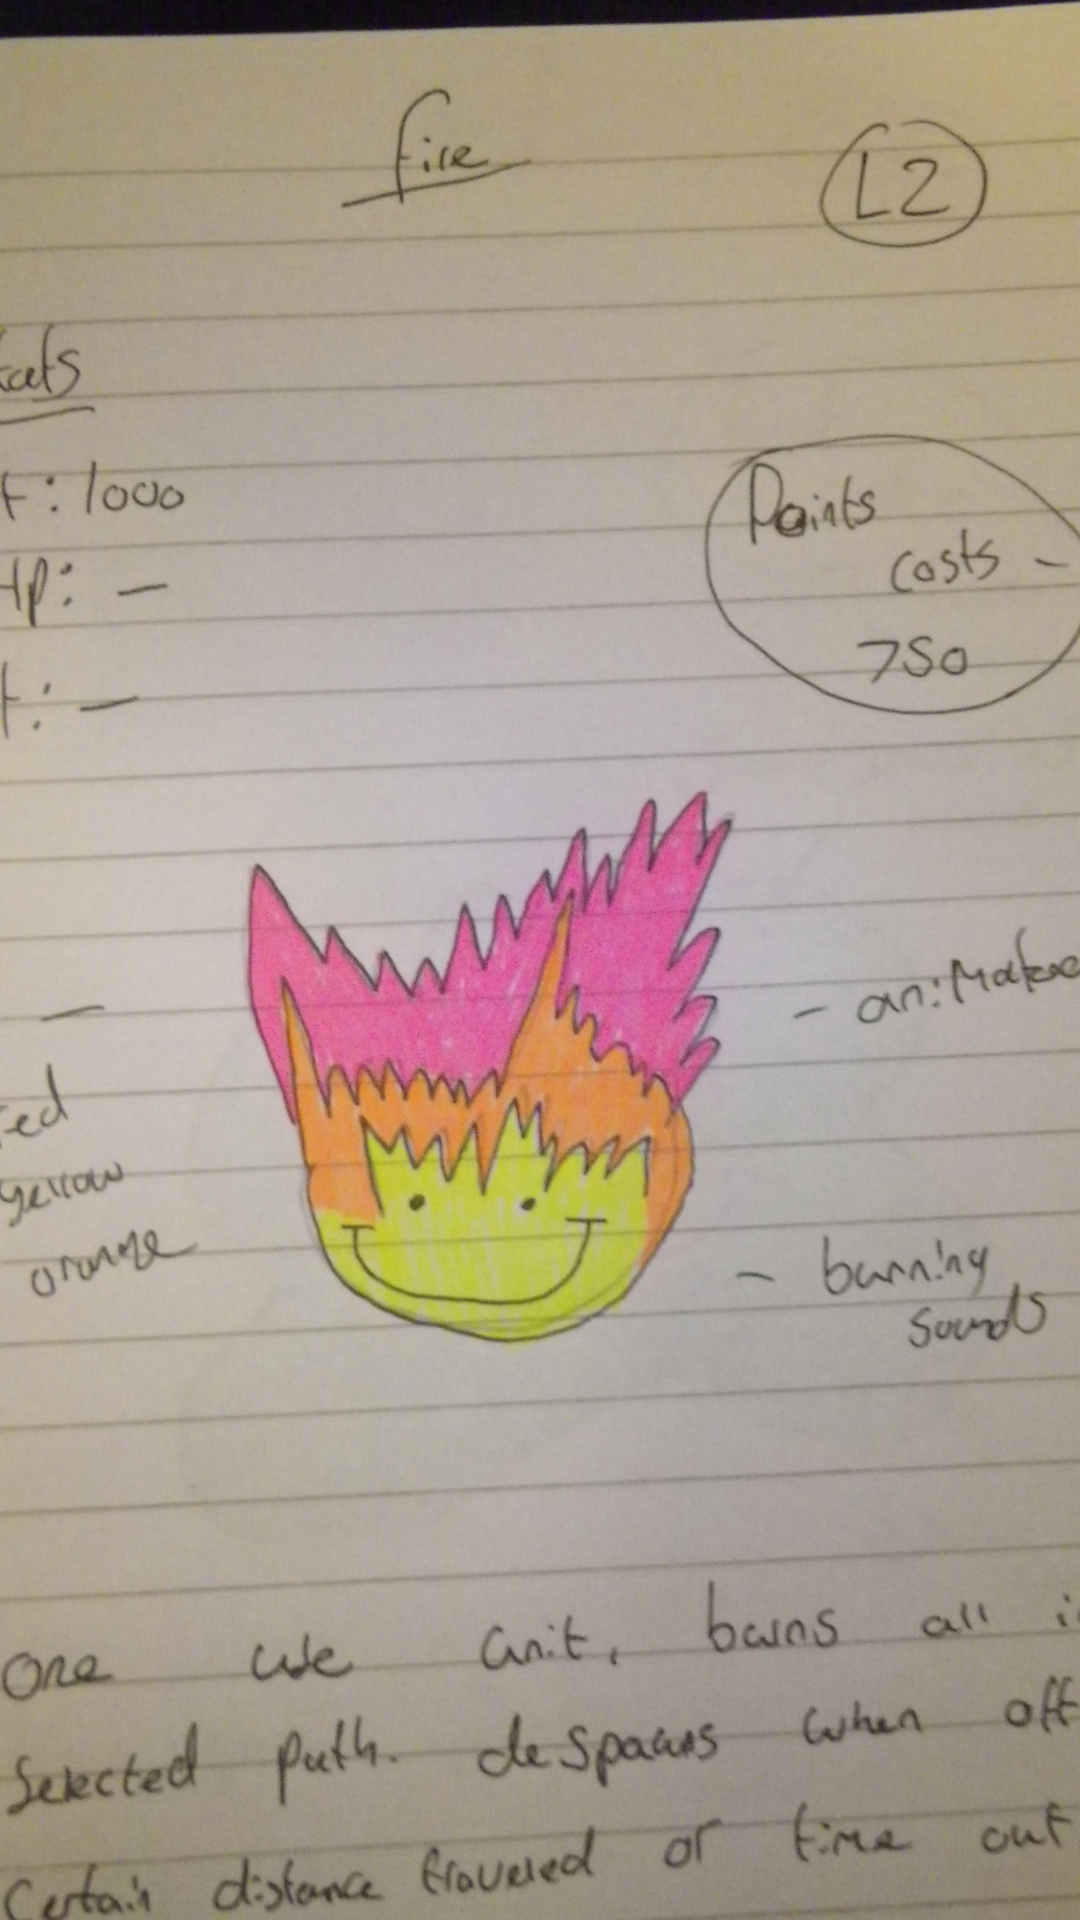 fire
L2
tats
t: 1000
Hp: —
t: —
Points
costs -
750
—
- animate
red
yellow
orange
- burning
sounds
One use unit, burns all i
Selected path. despawns when off
Certain distance traveled or time out